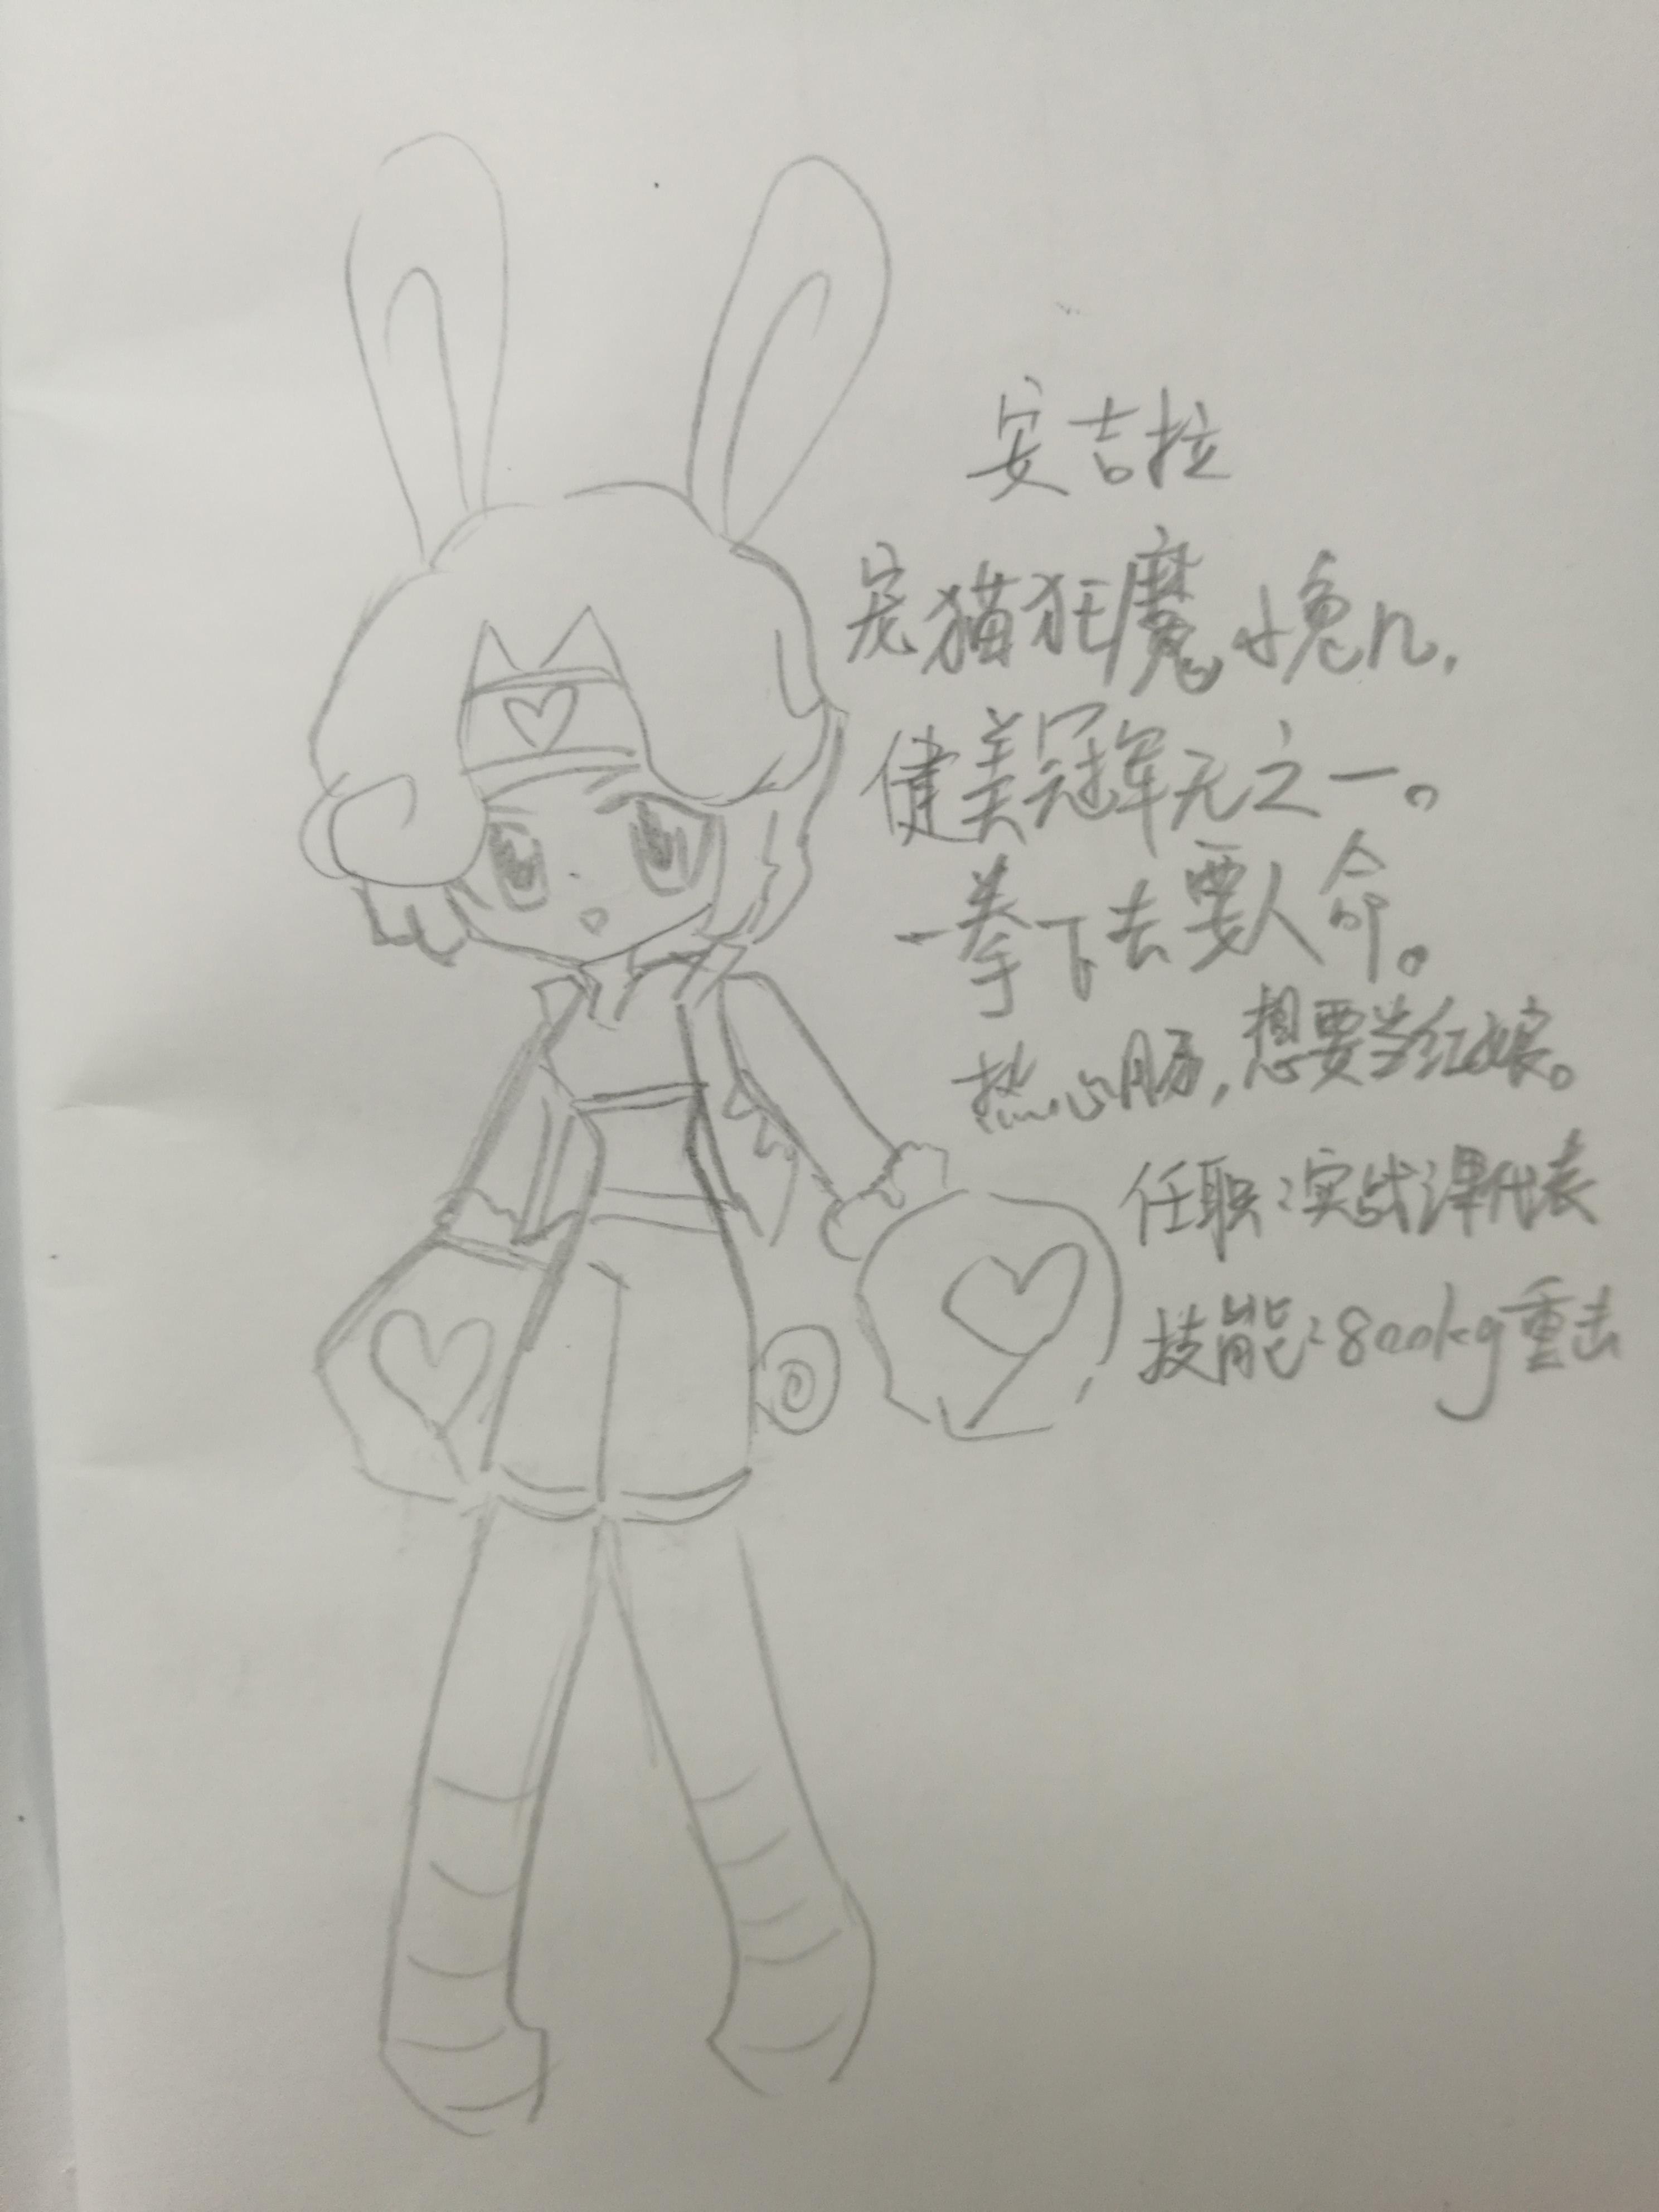 安吉拉
宠猫狂魔小兔几,
健美冠军无之一。
一拳下去要人命。
热心肠,想要当红娘。
任职:实战课代表
技能:800kg重击